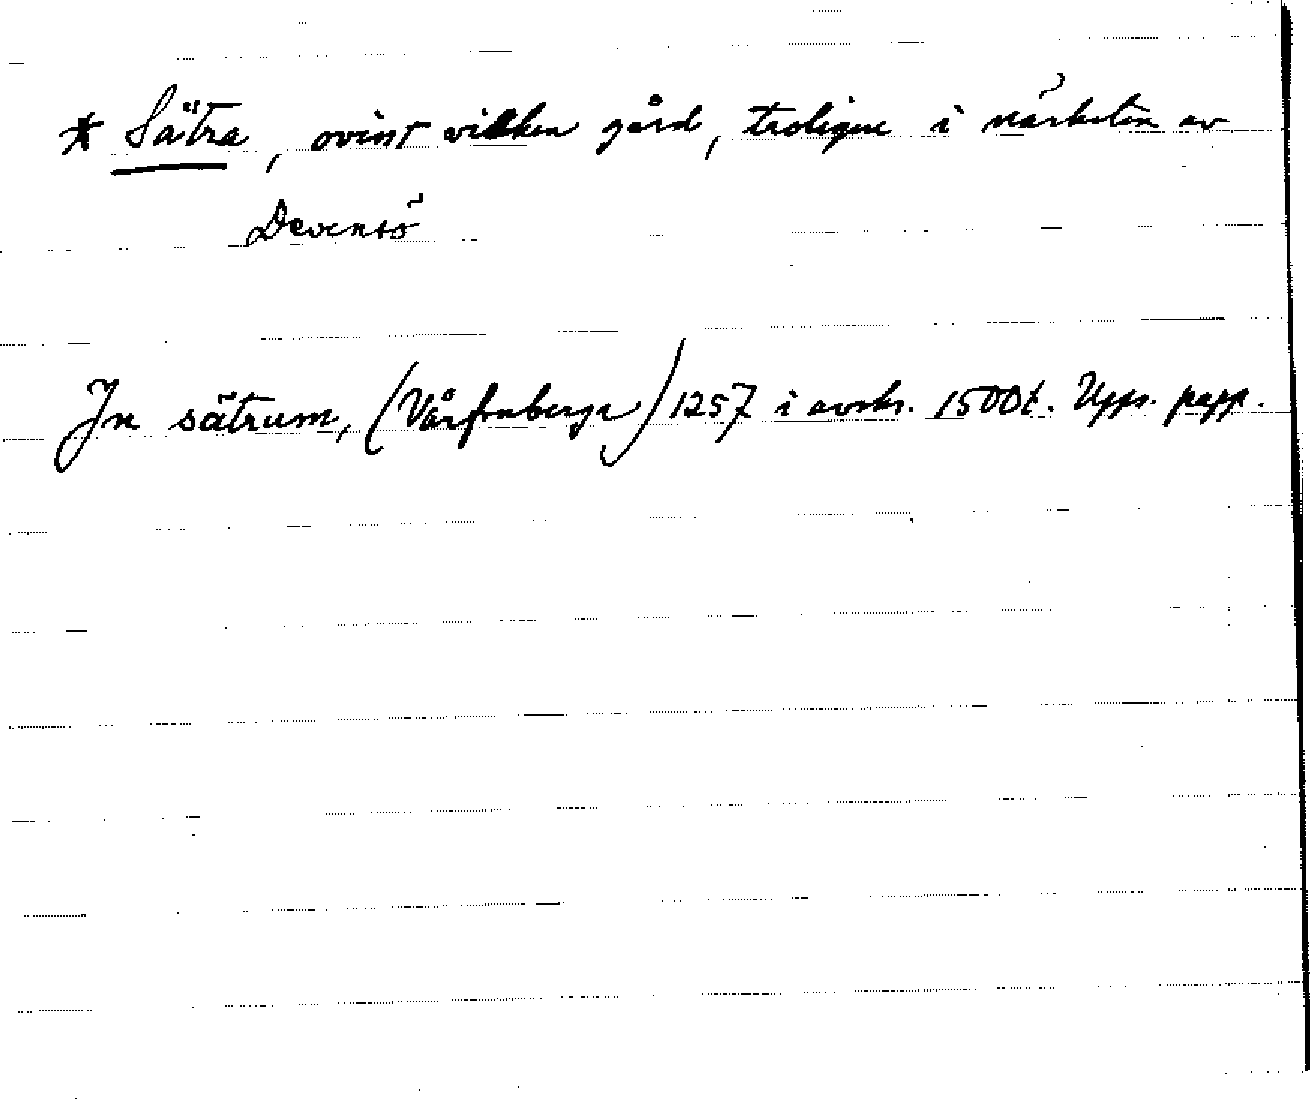 * Sätra, ovisst vilken gård, troligen i närheten av
Devensö
In sätrum, (Vårfruberga) 1257 i avskr. 1500t. Upps. papp.